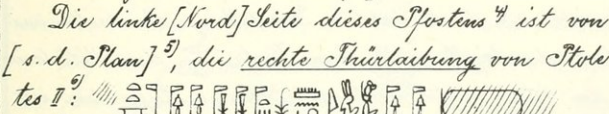 Die linke [Nord] Seite dieses Pfostens 4) ist von
[s. d. Plan] 5), die rechte Thürlaibung von Ptole
tes II 6):